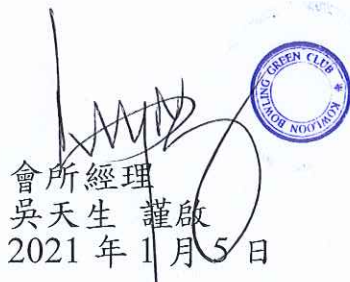 KOWLOON BOWLING GREEN CLUB *
會所經理
吳天生 謹啟
2021 年 1 月 5 日